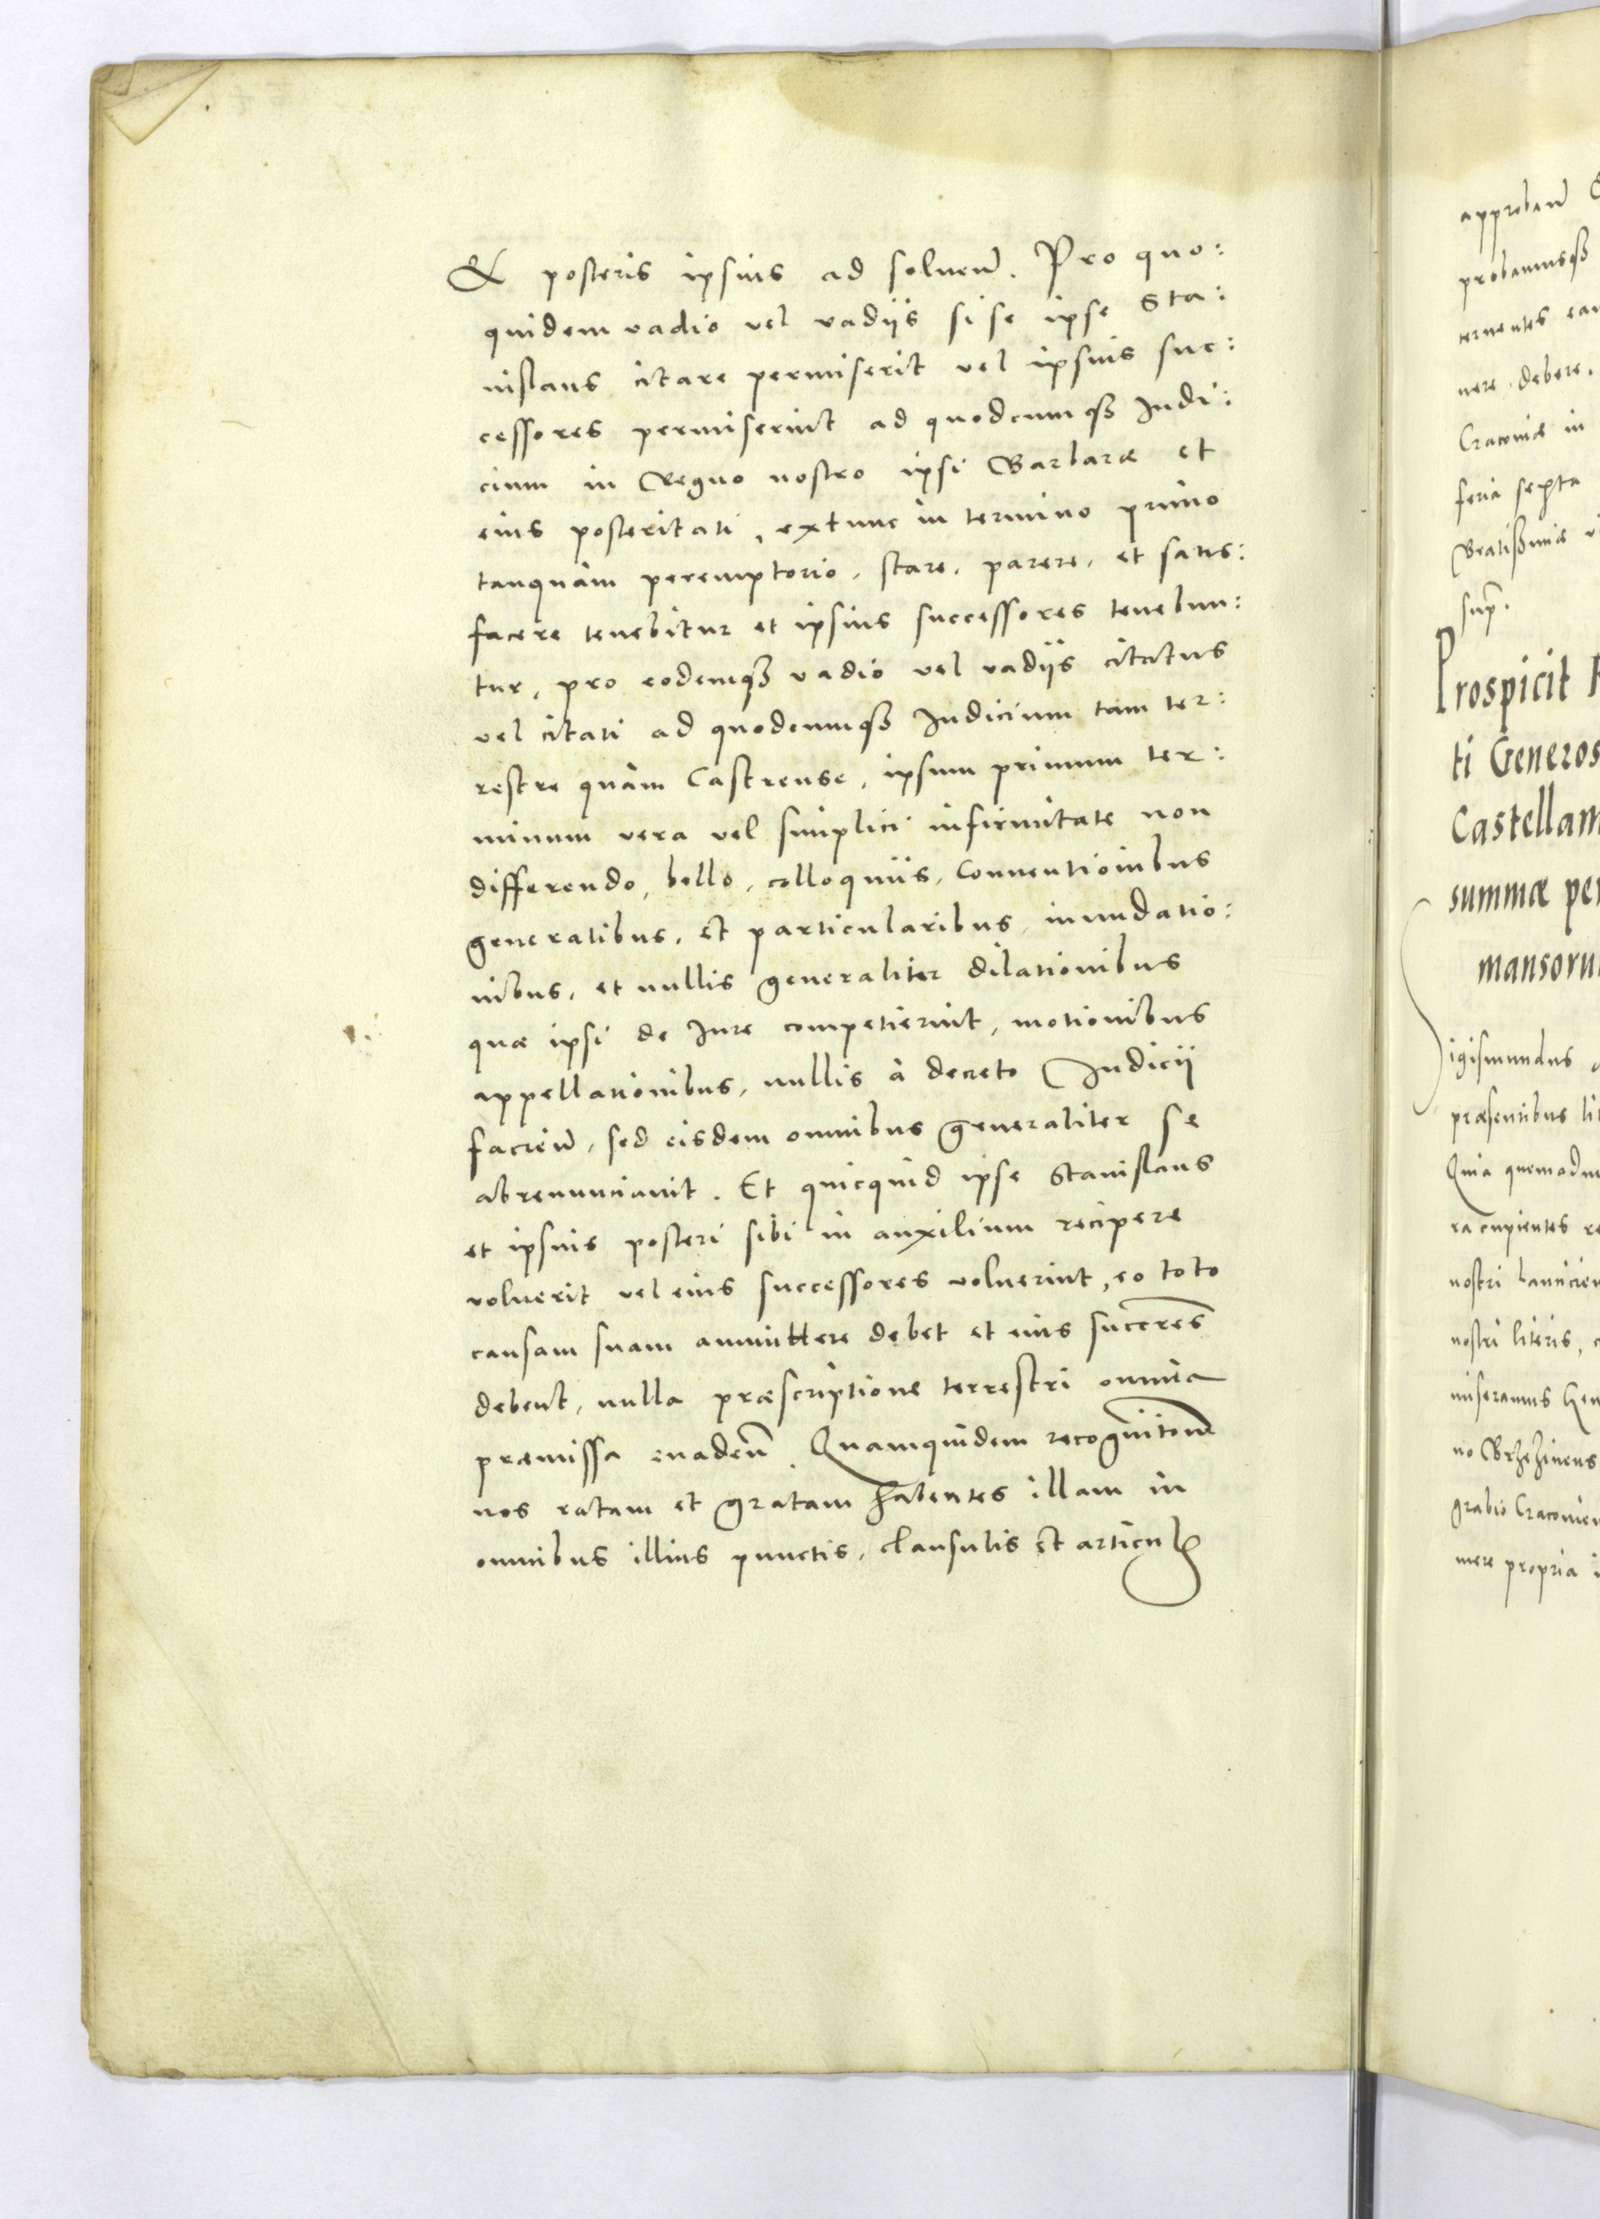 & posteris ipsius ad soluen̄. Pro quo:
quidem vadio vel vadijs si se ipse Sta:
nislaus citare permiserit vel ipsius suc:
cessores permiserint ad quodcumqȝ Iudi:
cium in Regno nostro ipsi Barbaræ et
eius posteritati, extunc in termino primo
tanquàm peremptorio, stare, parere, et satis:
facere tenebitur et ipsius successores tenebun:
tur, pro eodemqȝ vadio vel vadijs citatus
vel citati ad quodcumqȝ Iudicium tam ter:
restre quàm Castrense, ipsum primum ter:
minum vera vel simplici infirmitate non
differendo, bello, colloquiis, Conuentionibus
generalibus, et particularibus, inundatio:
nibus, et nullis generaliter dilationibus
quæ ipsi de Iure competierint, motionibus
appellationibus, nullis à decreto Iudicii
facien̄, sed eisdem omnibus generaliter se
abrenunciauit. Et quicquid ipse Stanislaus
et ipsius posteri sibi in auxilium recipere
voluerit vel eius successores voluerint, eo toto
causam suam ammittere debet et eius succres̄
debent, nulla præscriptione terrestri omnia
præmissa euaden̄. Quamquidem recognitionē
nos ratam et gratam habentes illam in
omnibus illius punctis, clausulis et articulis
approban̄
probamusqȝ
cernentes eam
nere debere.
Cracouiæ in
feria sexta
Beatissimæ
sup̄.
Prospicit
ti Generos
Castellam
summæ per
mansoru
igismundus
præsentibus lit
Quia quemadm
ra cupientes re
nostri Lancicien
nostri literis,
miseramus
no Brzezinens
grabio Cracouien
mere propria